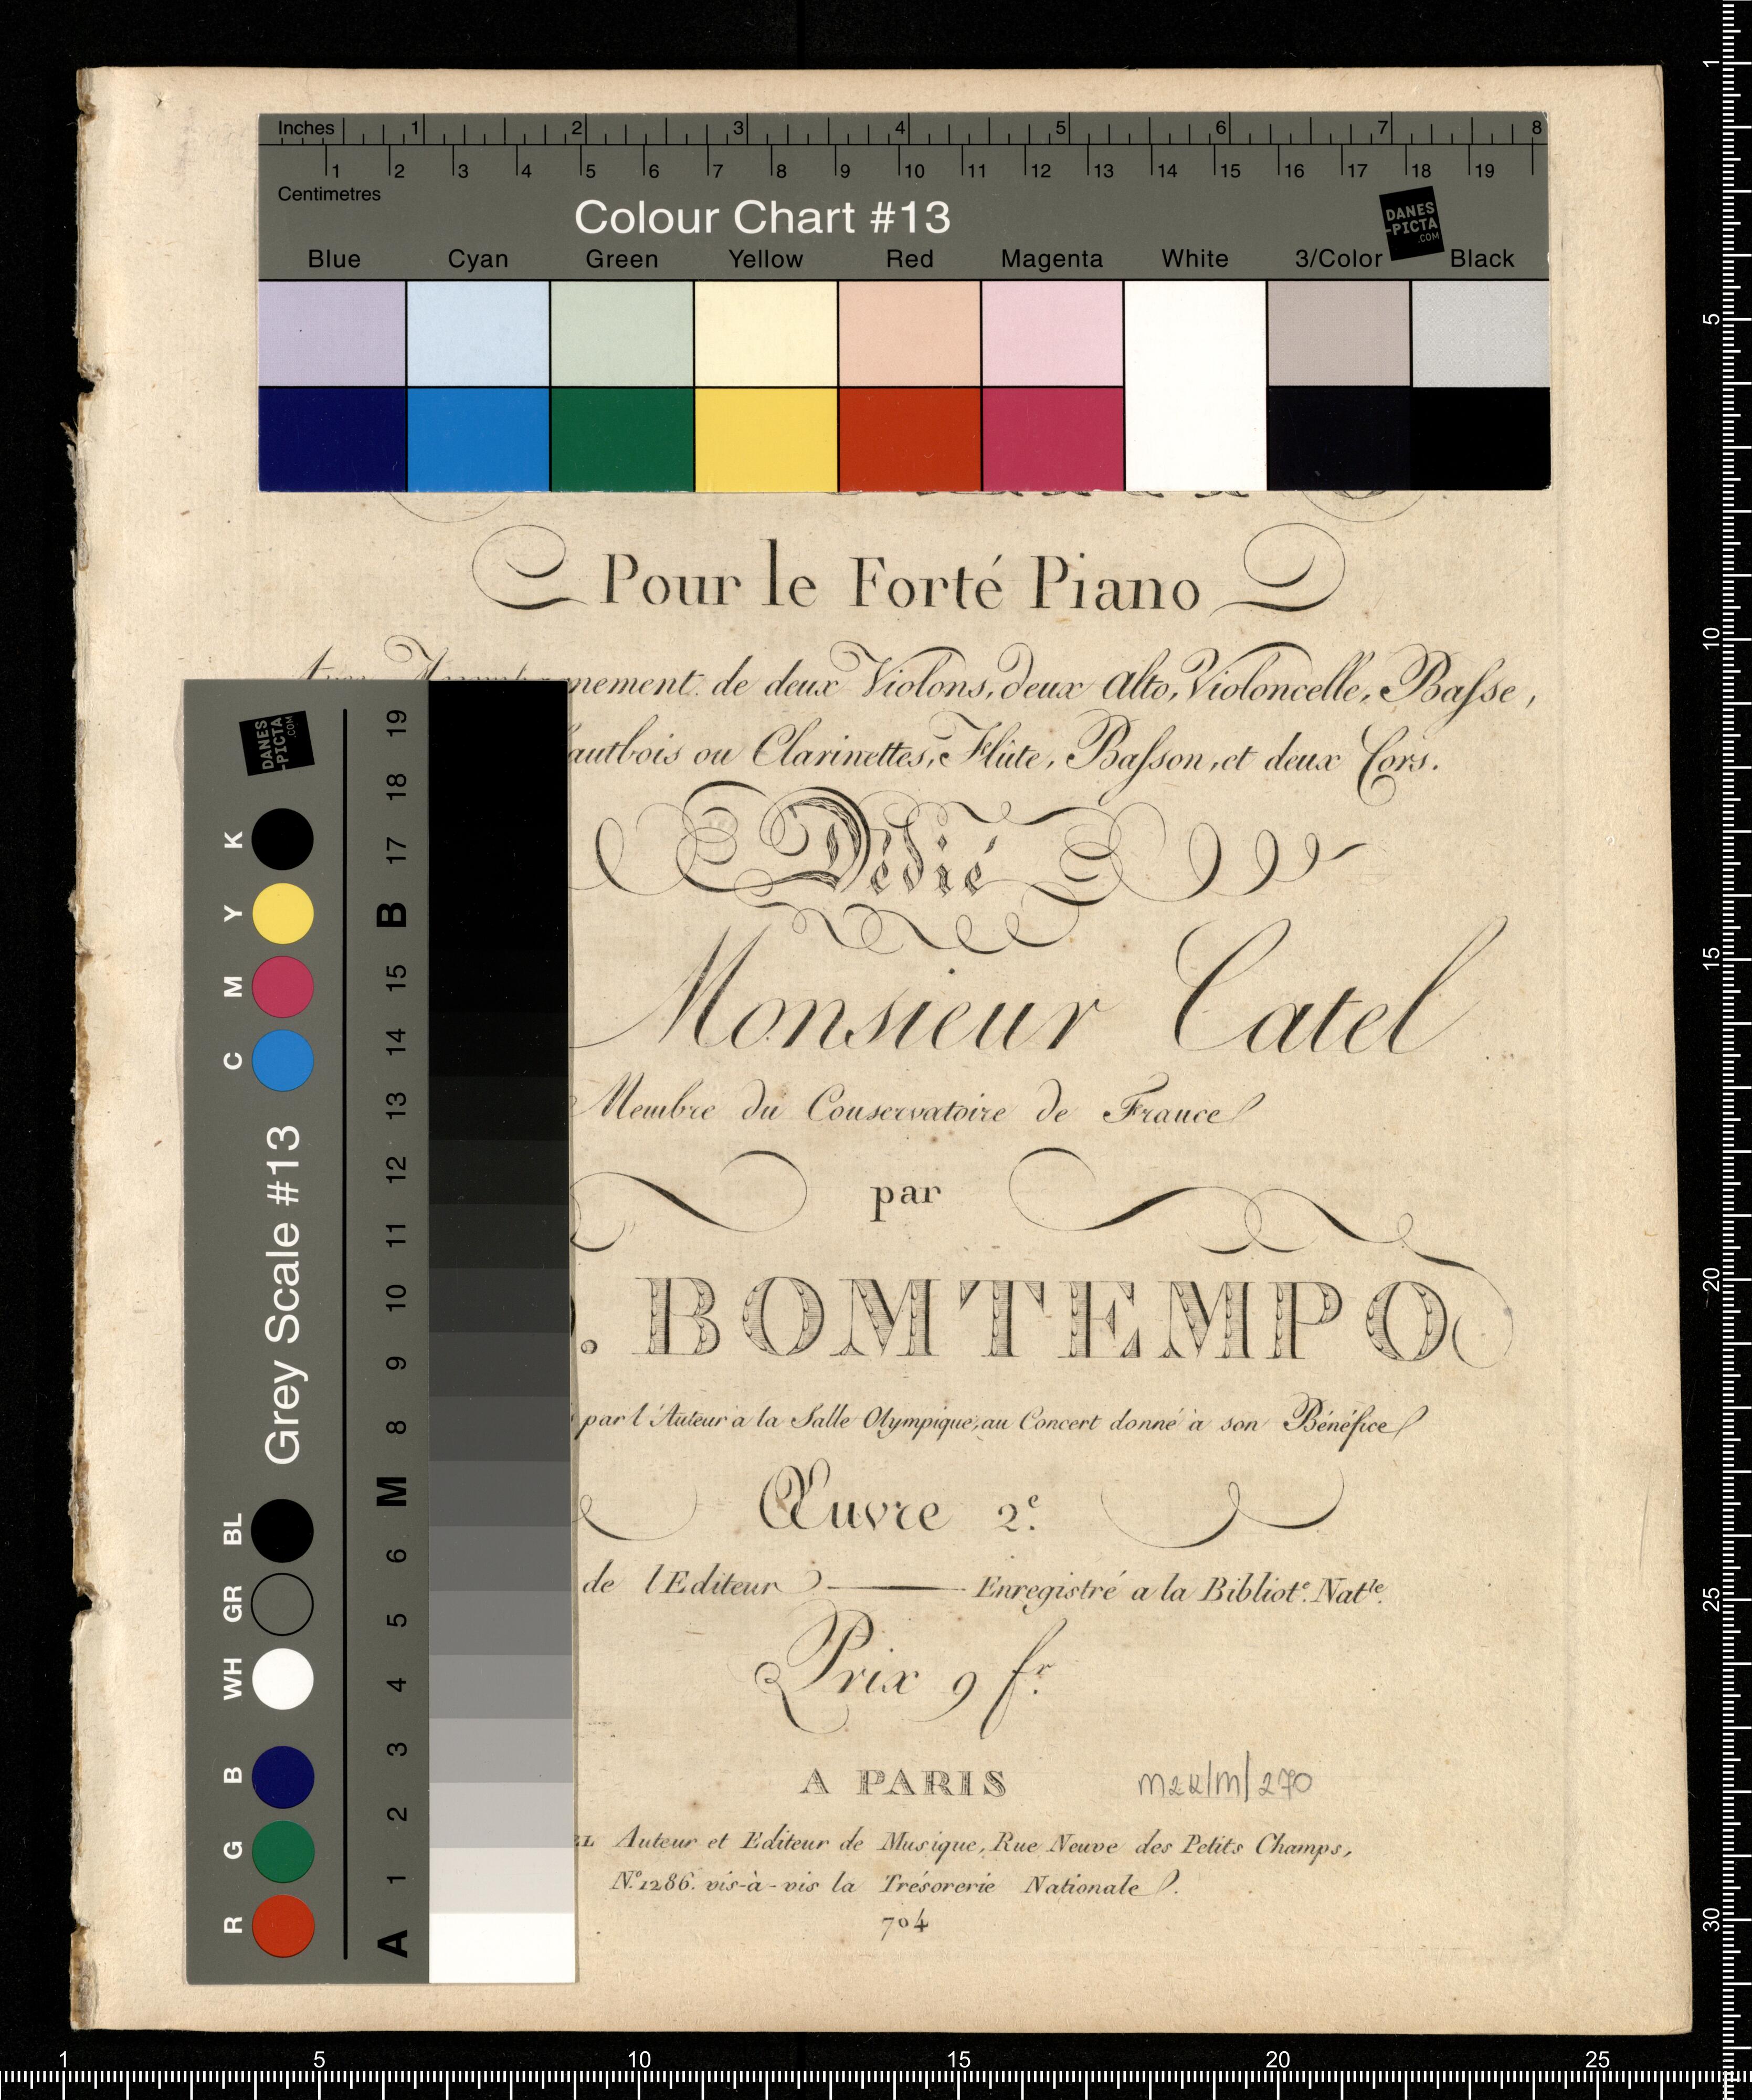 Inches 1 2 3 4 5 6 7 8
1 2 3 4 5 6 7 8 9 10 11 12 13 14 15 16 17 18 19
Centimetres
Colour Chart #13
DANES
-PICTA
.COM
Blue Cyan Green Yellow Red Magenta White 3/Color Black
Pour le Forté Piano
nement de deux Violons, deux Alto, Violoncelle, Basse,
autbois ou Clarinettes, Flûte, Basson, et deux Cors.
Dédié
Monsieur Catel
Membre du Conservatoire de France
par
. BOMTEMPO
par l'Auteur a la Salle Olympique, au Concert donné à son Bénéfice
Œuvre 2.e
de l'Editeur — Enregistré a la Bibliot.e Nat.le
Prix 9 f.r
A PARIS
M2R/M/270
EL Auteur et Editeur de Musique, Rue Neuve des Petits Champs,
N.o 1286. vis-à-vis la Trésorerie Nationale.
704
Grey Scale #13
DANES
-PICTA
.COM
R G B WH GR BL C M Y K
A 1 2 3 4 5 6 M 8 9 10 11 12 13 14 15 B 17 18 19
1 5 10 15 20 25 30
1 5 10 15 20 25